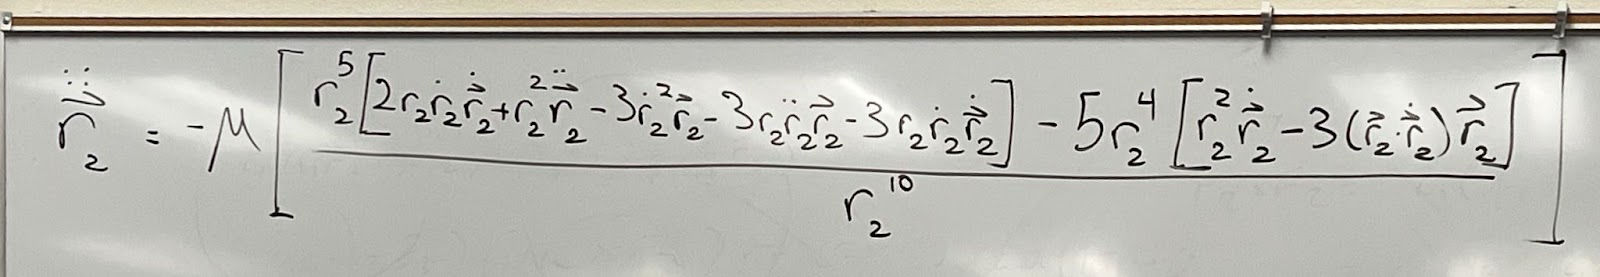 $\ddddot{\vec{r}}_2 = -\mu \left[ \frac{r_2^5 \left[ 2 r_2 \dot{r}_2 \dot{\vec{r}}_2 + r_2^2 \ddot{\vec{r}}_2 - 3 \dot{r}_2^2 \vec{r}_2 - 3 r_2 \ddot{r}_2 \vec{r}_2 - 3 r_2 \dot{r}_2 \dot{\vec{r}}_2 \right] - 5 r_2^4 \left[ r_2^2 \dot{\vec{r}}_2 - 3 (\vec{r}_2 \cdot \dot{\vec{r}}_2) \vec{r}_2 \right]}{r_2^{10}} \right]$